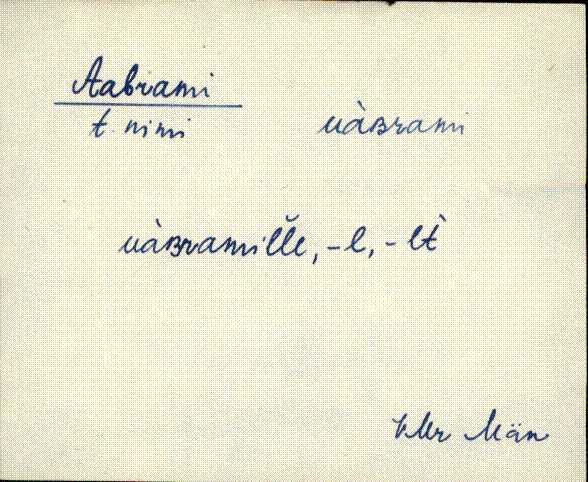 Aabrami
t. nimi uàʙrami
uàʙramil̆l̆e, -l, -lt̀
VMr Män